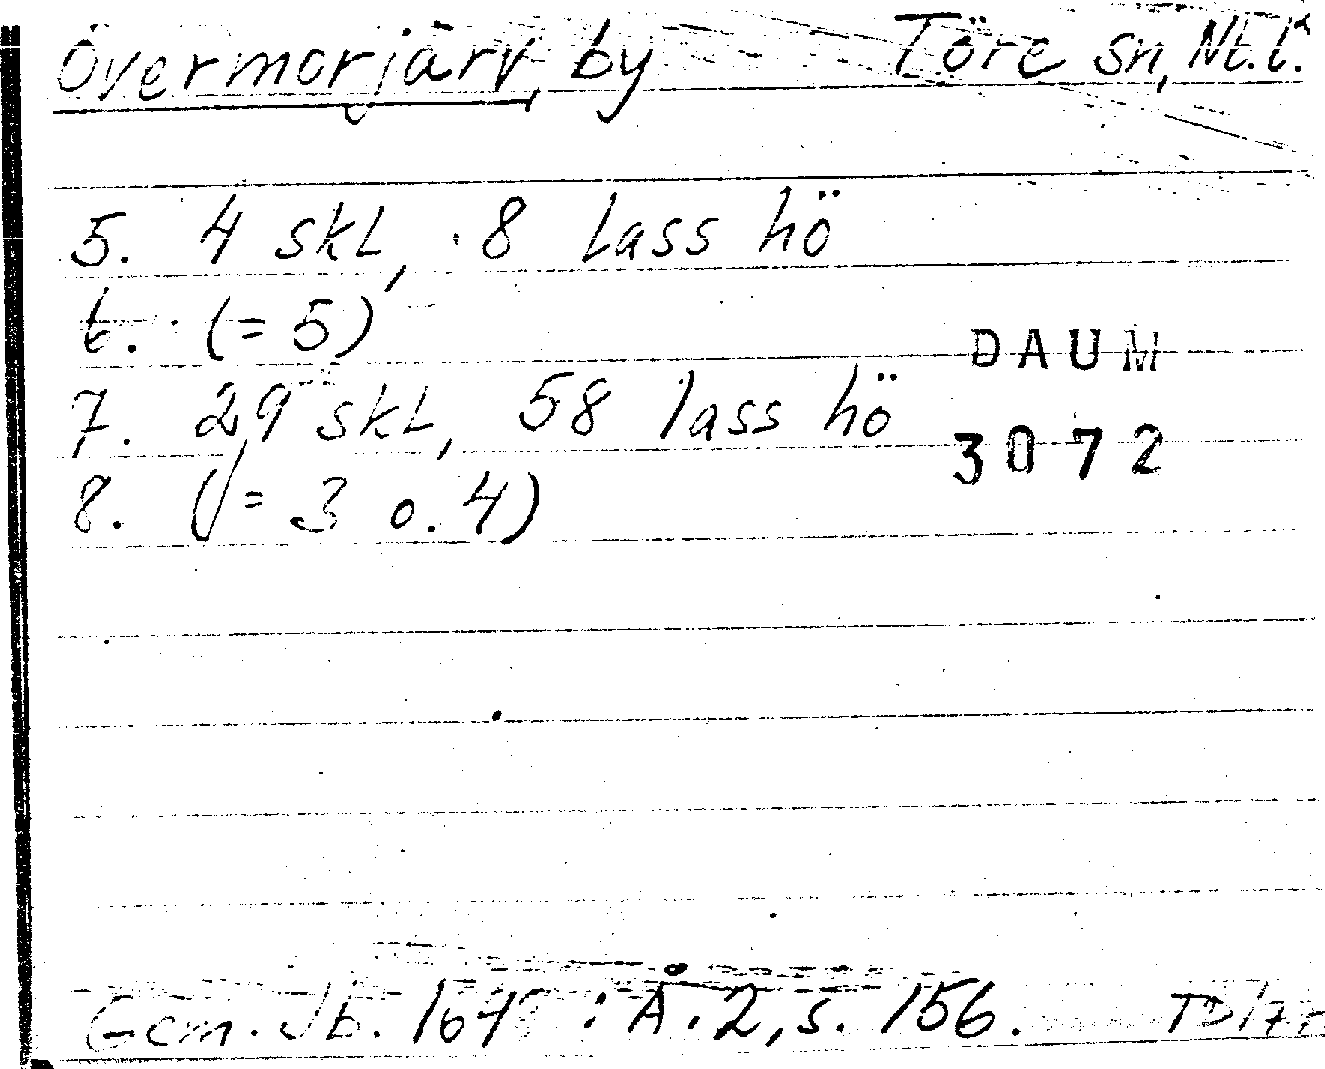 Övermorjärv, by Töre sn, Nb.l.
5. 4 skl, 8 lass hö
6. (= 5)
7. 29 skl, 58 lass hö
8. (= 3 o. 4)
DAUM
3072
Gem. Jb. : A. 2, s. 156.